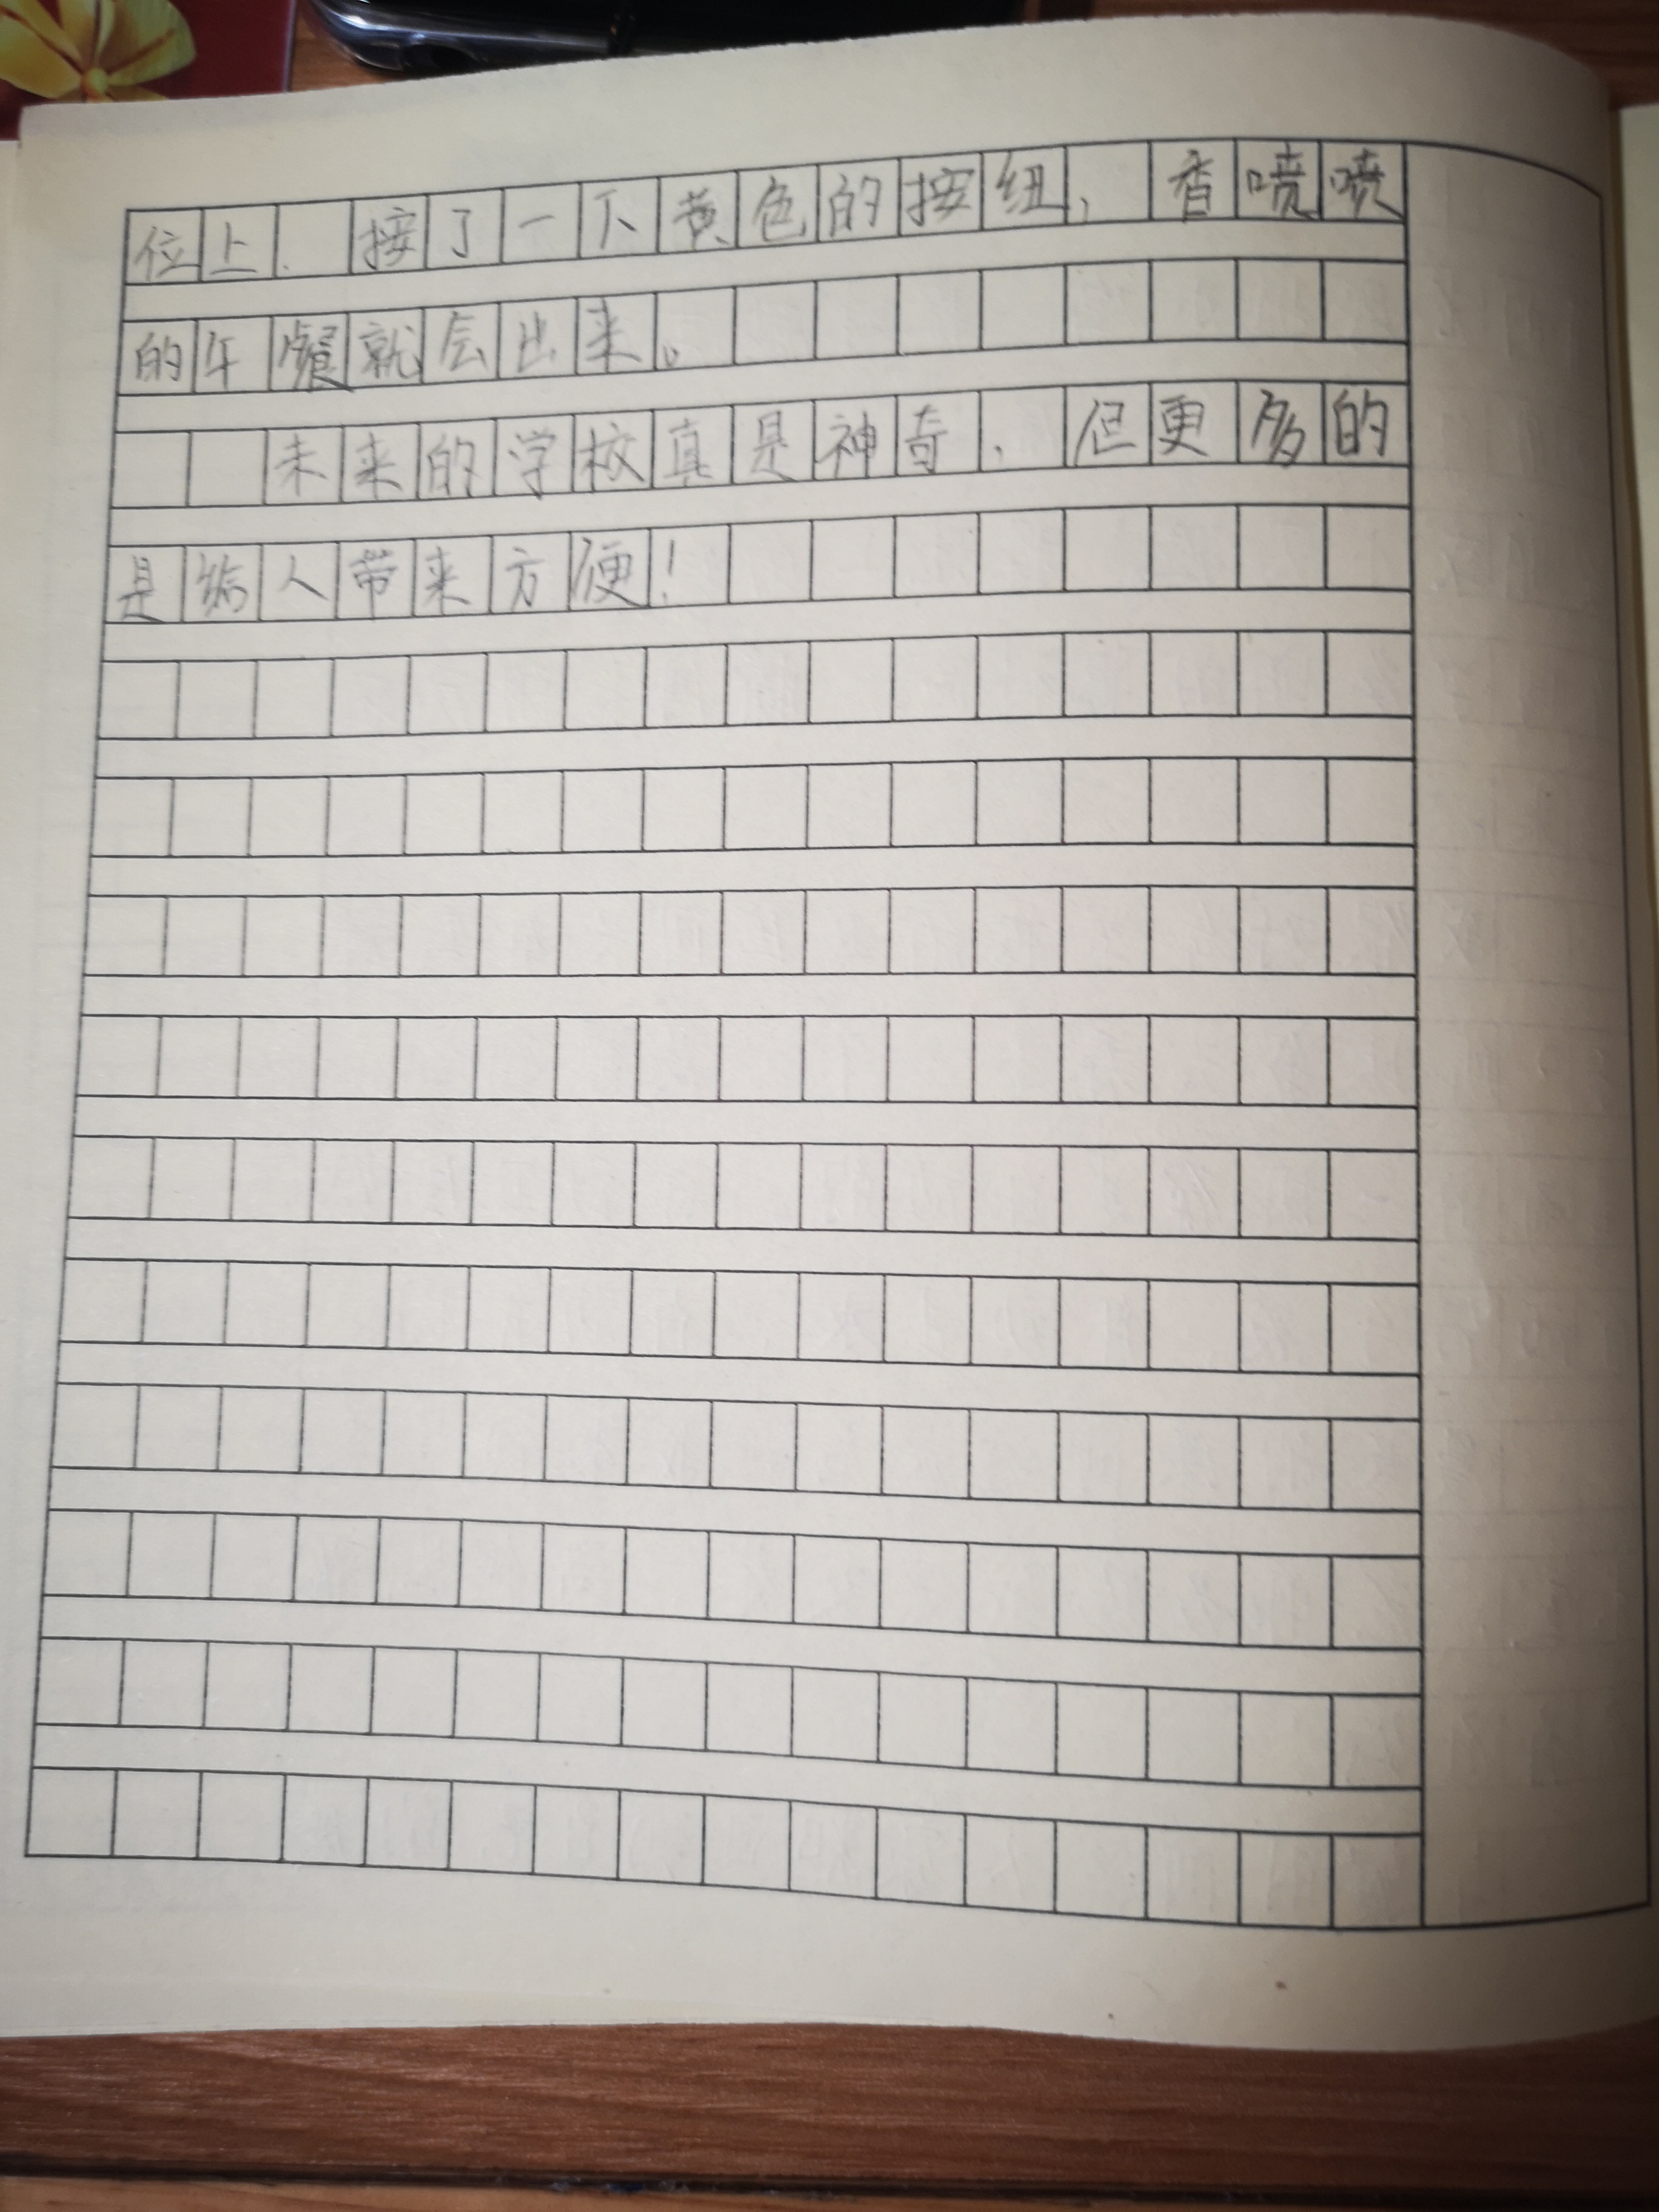 位上，接了一下黄色的按纽，香喷喷
的午餐就会出来。
未来的学校真是神奇，但更多的
是给人带来方便！